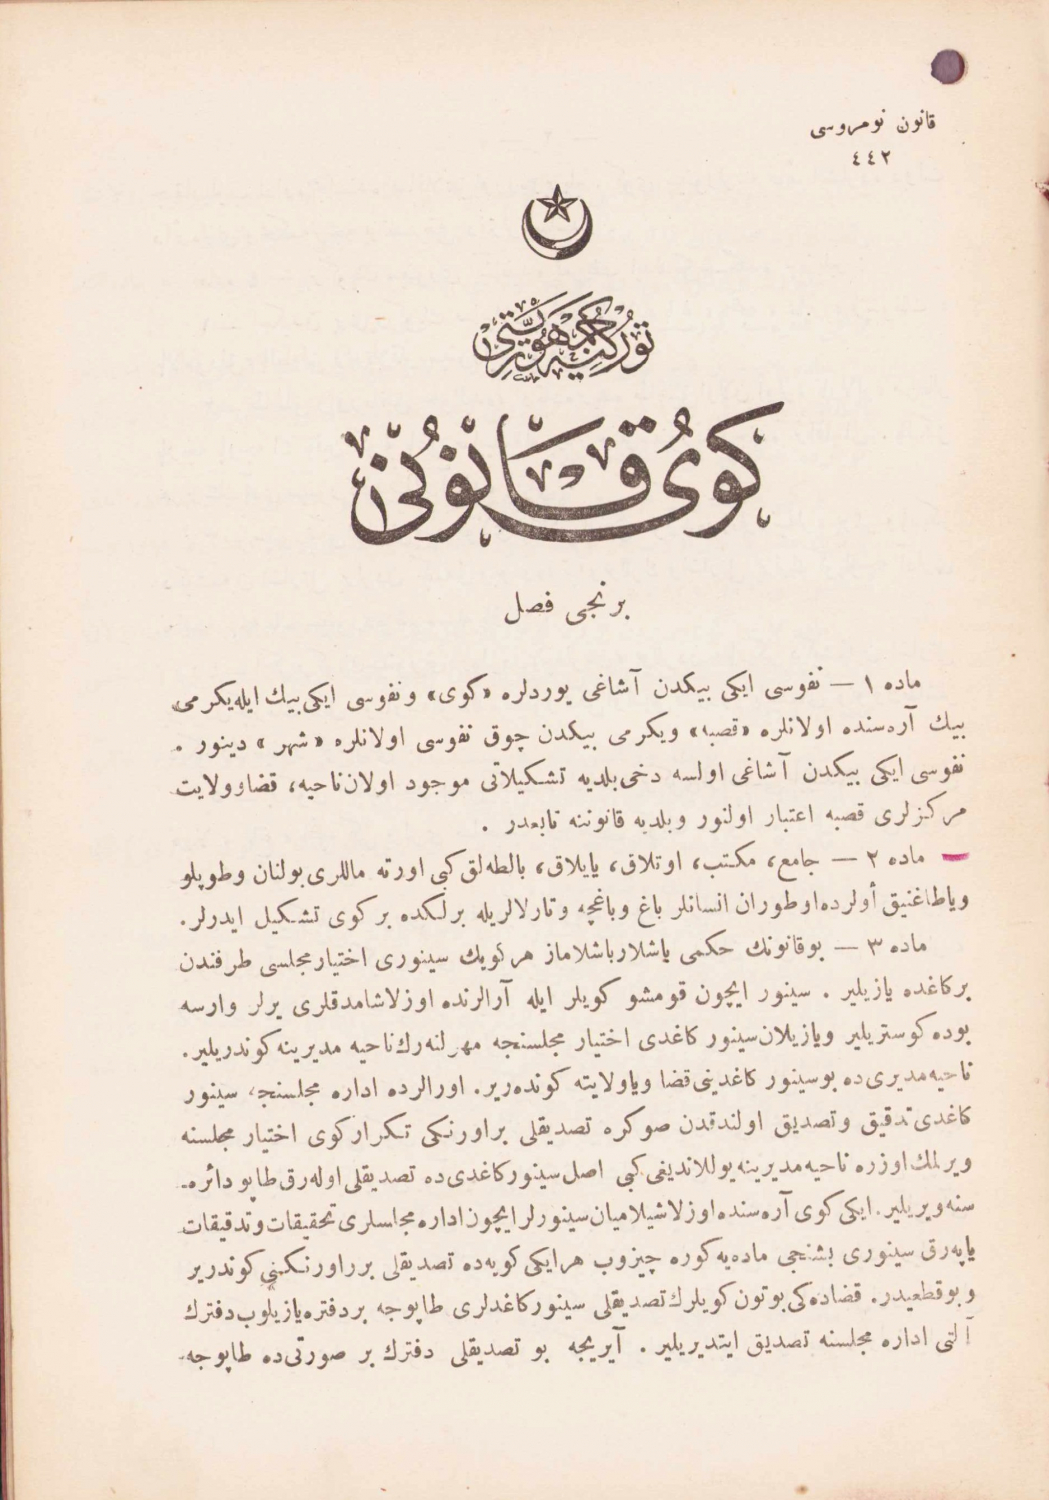 قانون نومروسی
٤٤٢
توركیه جمهوریتی
كوی قانونی
برنجی فصل
ماده ١ — نفوسی ایكی بیكدن آشاغی یوردلره «كوی» ونفوسی ایكی بیك ایله یكرمی
بیك آره‌سنده اولانلره «قصبه» ویكرمی بیكدن چوق نفوسی اولانلره «شهر» دینور .
نفوسی ایكی بیكدن آشاغی اولسه دخی بلدیه تشكیلاتی موجود اولان ناحیه، قضا وولایت
مركزلری قصبه اعتبار اولنور وبلدیه قانوننه تابعدر .
— ماده ٢ — جامع، مكتب، اوتلاق، یایلاق، بالطه‌لق كبی اورته ماللری بولنان وطوپلو
ویا طاغنیق أولرده اوطوران انسانلر باغ وباغچه وتارلالریله برلكده بر كوی تشكیل ایدرلر.
ماده ٣ — بوقانونك حكمی یاشلار باشلاماز هر كویك سینوری اختیار مجلسی طرفندن
بر كاغده یازیلیر . سینور ایچون قومشو كویلر ایله آرالرنده اوزلاشامدقلری یرلر وارسه
بوده كوستریلیر ویازیلان سینور كاغدی اختیار مجلسنجه مهرلنه‌رك ناحیه مدیرینه كوندریلیر.
ناحیه مدیری ده بو سینور كاغدینی قضا ویا ولایته كونده‌ریر. اورالرده اداره مجلسنجه سینور
كاغدی تدقیق وتصدیق اولندقدن صوكره تصدیقلی بر اورنكی تكرار كوی اختیار مجلسنه
ویرلمك اوزره ناحیه مدیرینه یوللاندیغی كبی اصل سینور كاغدی ده تصدیقلی اوله‌رق طاپو دائره‌-
سنه ویریلیر. ایكی كوی آره‌سنده اوزلاشیلامیان سینورلر ایچون اداره مجلسلری تحقیقات وتدقیقات
یاپه‌رق سینوری بشنجی ماده‌یه كوره چیزوب هر ایكی كویه ده تصدیقلی برر اورنكنی كوندریر
وبو قطعیدر. قضاده‌كی بوتون كویلرك تصدیقلی سینور كاغدلری طاپوجه بر دفتره یازیلوب دفترك
آلتی اداره مجلسنه تصدیق ایتدیریلیر . آیریجه بو تصدیقلی دفترك بر صورتی ده طاپوجه-